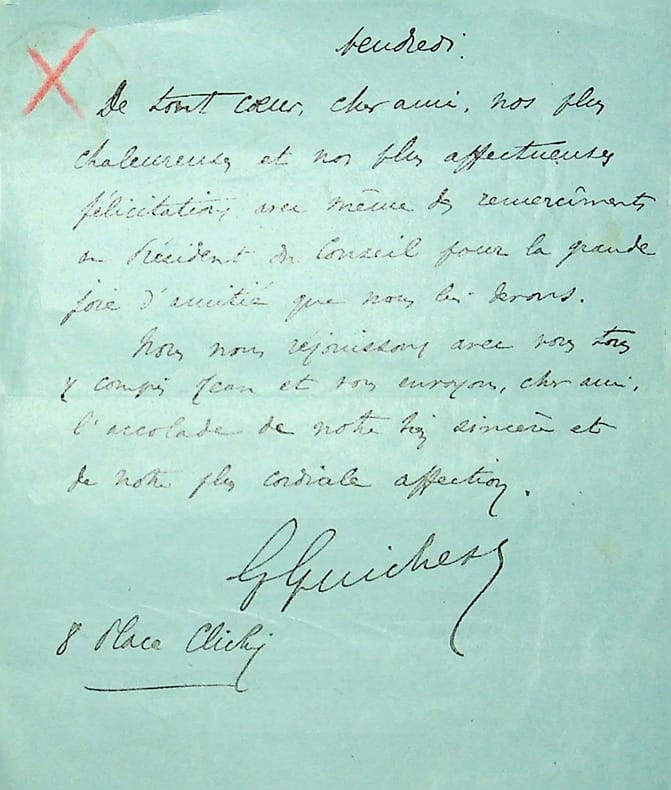 Vendredi.
De tout cœur, cher ami, nos plus
chaleureuses et nos plus affectueuses
félicitations avec même des remerciments
au Président du Conseil pour la grande
joie d'amitié que nous lui devons.
Nous nous réjouissons avec vous tous
y compris Jean et vous envoyons, cher ami,
l'accolade de notre très sincère et
de notre plus cordiale affection.
G Guiches
8 Place Clichy